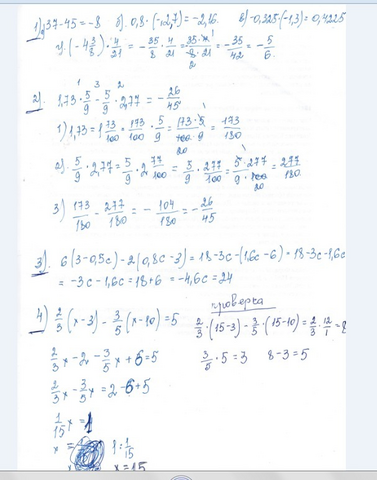 1) 37-45=-8 б). 0,8·(-2,7)=-2,16. в) -0,325·(-1,3)=0,4225
г). (-4 3/8)·4/21 = -35/8 · 4/21 = 35·4/8·21 = -35/42 = -5/6.
2). 1,73·5/9 - 5/9·2,77 = -26/45
1) 1,73 = 1 73/100 = 173/100 · 5/9 = 173·5/100·9 = 173/180
2). 5/9·2,77 = 5/9·2 77/100 = 5/9 · 277/100 = 5·277/9·100 = 277/180
3) 173/180 - 277/180 = -104/180 = -26/45
3). 6(3-0,5c)-2(0,8c-3)=18-3c-(1,6c-6)=18-3c-1,6c
=-3c-1,6c=18+6=-4,6c=24
4) 2/3(x-3)-3/5(x-10)=5
2/3x-2-3/5x+6=5
2/3x-3/5x=2-6+5
1/15x=1
x= 1:1/15
x=15
проверка
2/3·(15-3)-3/5·(15-10)=2/3·12/1=8
3/5·5=3 8-3=5